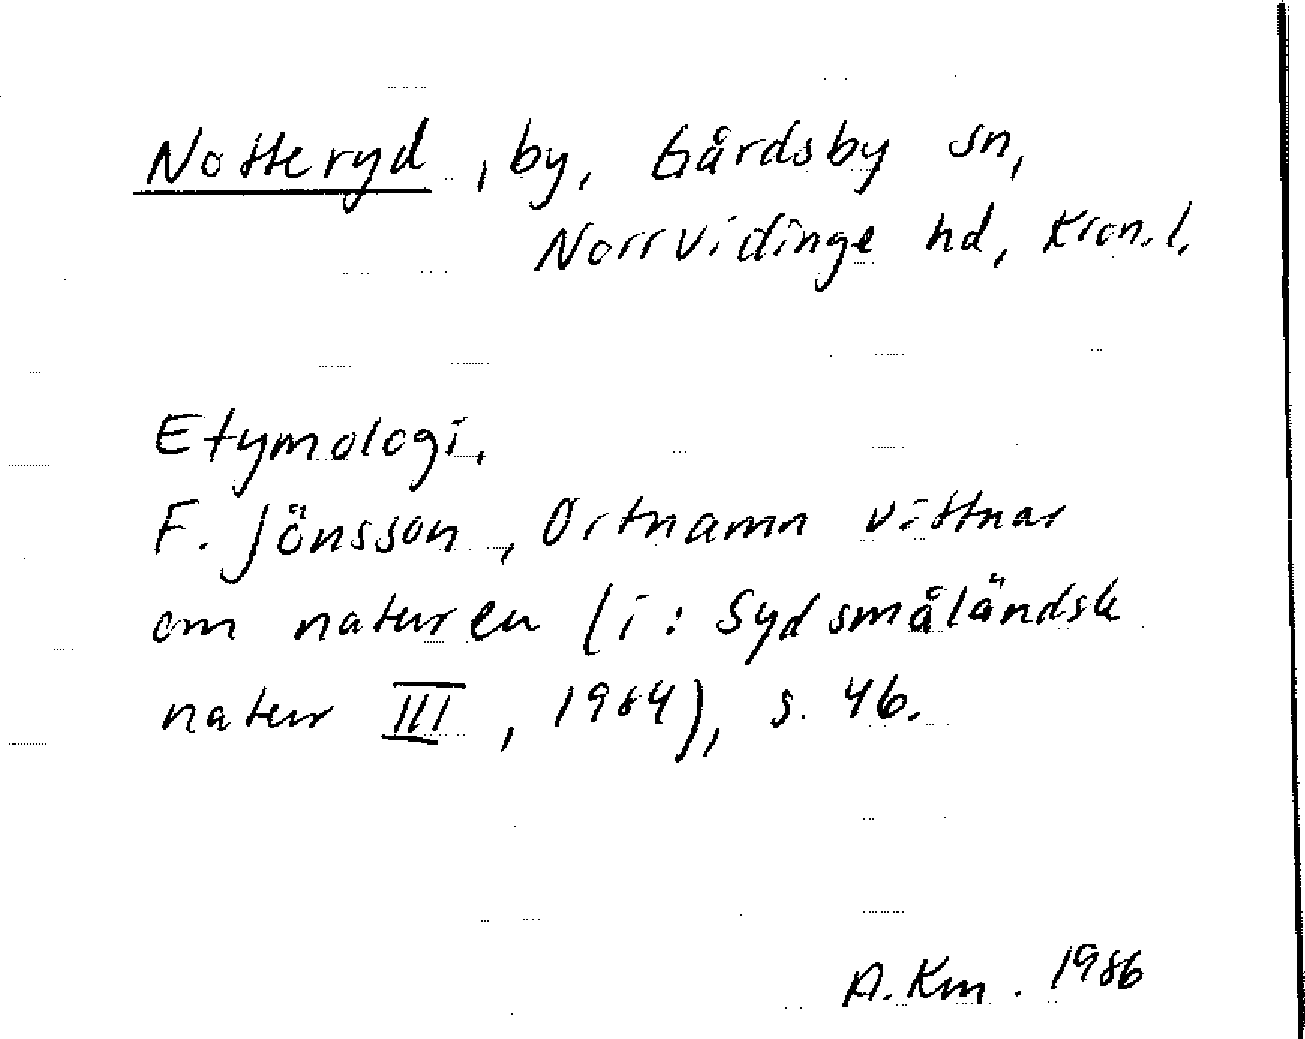 Notteryd, by, Gårdsby sn,
Norrvidinge hd, Kron.l.
Etymologi.
F. Jönsson, Ortnamn vittnar
om naturen (i: Sydsmåländsk
natur III, 1984), s. 46.
A. Km. 1986